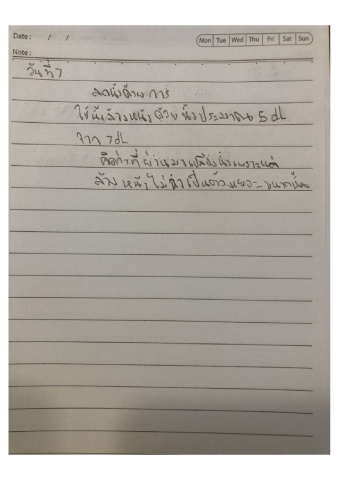 Date: / / Mon Tue Wed Thu Fri Sat Sun
Note:
วันที่ 7
ลดน้ำด้วยการ
ใช้น้ำล้างหน้าด้วยน้ำประมาณ 5 dL
จาก 7dL
คิดว่าที่ผ่านมาเปลืองน้ำเพราะแค่
ล้างหน้าไม่จำเป็นต้องเยอะขนาดนั้น